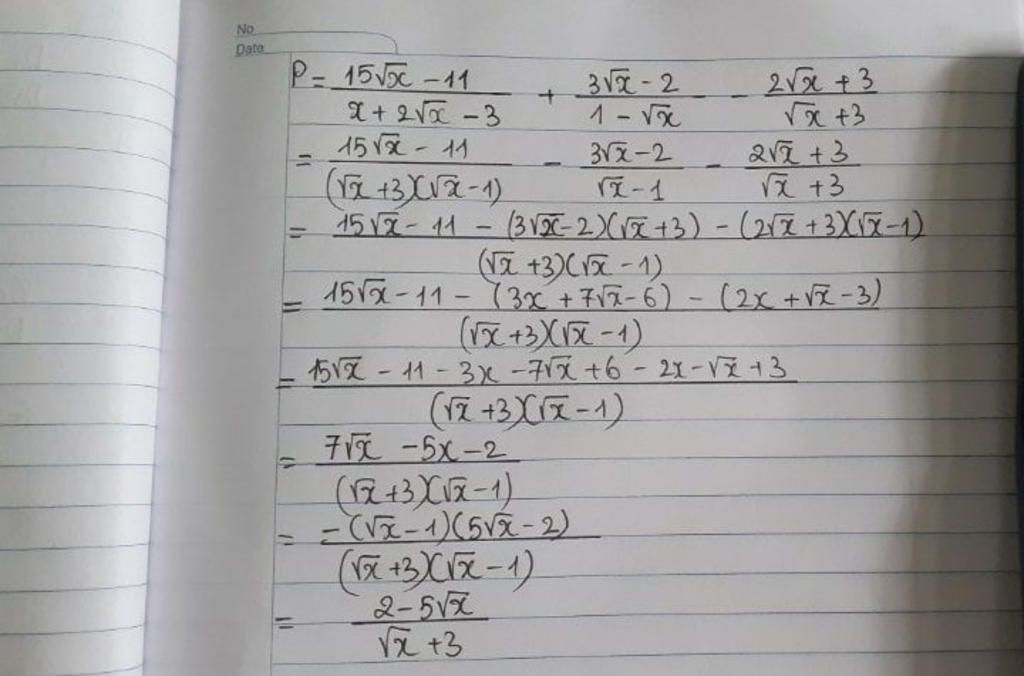 No
Date
P = (15√x - 11)/(x + 2√x - 3) + (3√x - 2)/(1 - √x) - (2√x + 3)/(√x + 3)
= (15√x - 11)/((√x + 3)(√x - 1)) - (3√x - 2)/(√x - 1) - (2√x + 3)/(√x + 3)
= (15√x - 11 - (3√x - 2)(√x + 3) - (2√x + 3)(√x - 1))/((√x + 3)(√x - 1))
= (15√x - 11 - (3x + 7√x - 6) - (2x + √x - 3))/((√x + 3)(√x - 1))
= (15√x - 11 - 3x - 7√x + 6 - 2x - √x + 3)/((√x + 3)(√x - 1))
= (7√x - 5x - 2)/((√x + 3)(√x - 1))
= (-(√x - 1)(5√x - 2))/((√x + 3)(√x - 1))
= (2 - 5√x)/(√x + 3)